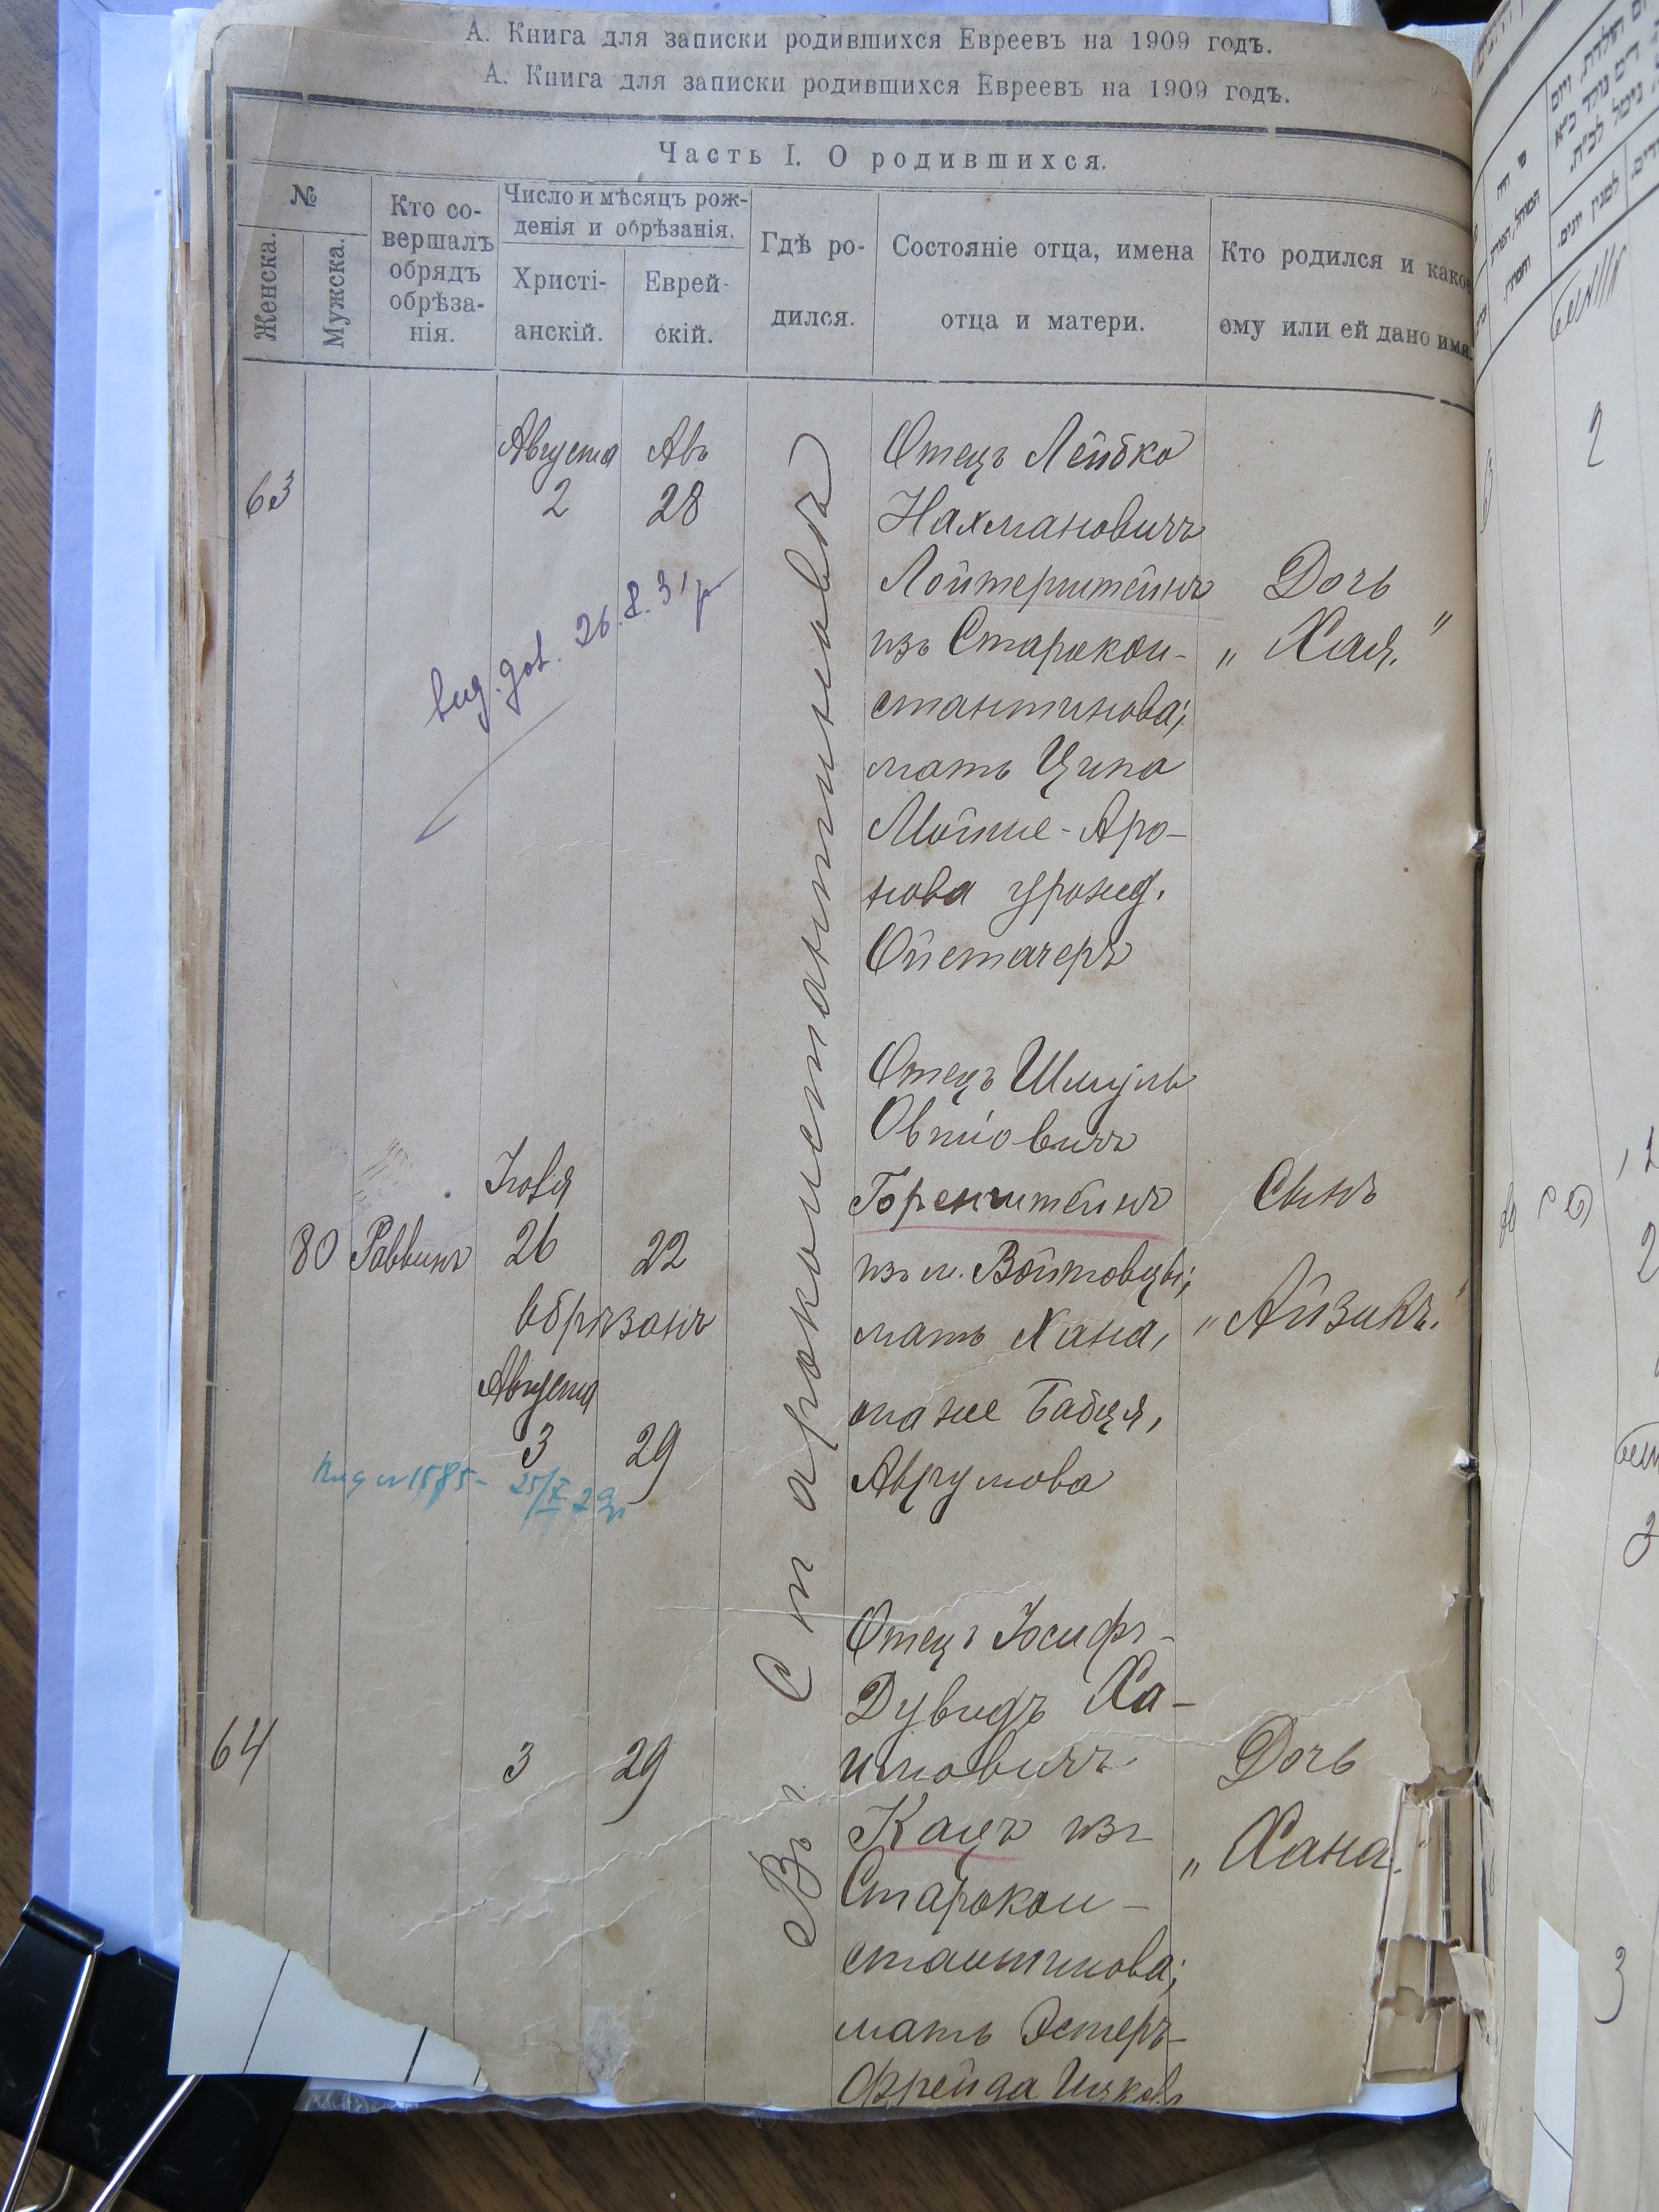 А. Книга для записки родившихся Евреевъ на 1909 годъ.
А. Книга для записки родившихся Евреевъ на 1909 годъ.
Часть I. О родившихся.
№
Женска.
Мужска.
Кто со-
вершалъ
обрядъ
обрѣза-
нія.
Число и мѣсяцъ рож-
денія и обрѣзанія.
Христі-
анскій.
Еврей-
скій.
Гдѣ ро-
дился.
Состояніе отца, имена
отца и матери.
Кто родился и какое
ему или ей дано имя.
63
Августа
2
Авъ
28
вид. дов. 26.8.31р
Въ г. Староконстантиновѣ
Отецъ Лейбко
Нахмановичъ
Лойтерштейнъ
изъ Старокон-
стантинова;
мать Ципа
Мошие-Аро-
нова урожд.
Ойстачеръ
Дочь
„Хая.“
80
Раввинъ
Іюля
26
22
обрѣзанъ
Августа
3
29
25/X 29р
Отецъ Шмуль
Овшіовичъ
Горенштейнъ
изъ м. Войтовцы;
мать Хана,
она же Бабця,
Аврумова
Сынъ
„Айзикъ.“
64
3
29
Отецъ Іосифъ-
Дувидъ Ха-
имовичъ
Кацъ изъ
Старокон-
стантинова;
мать Эстеръ-
Фрейда Ицков
Дочь
„Хана.“